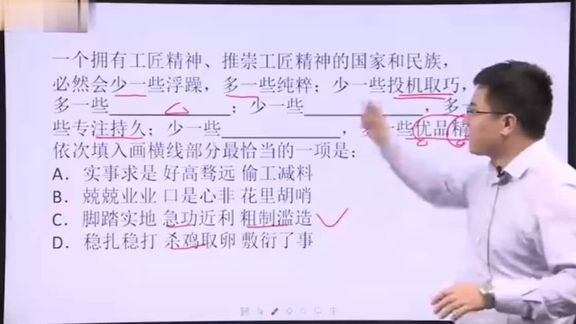 一个拥有工匠精神、推崇工匠精神的国家和民族,
必然会少一些浮躁,多一些纯粹;少一些投机取巧,
多一些____________;少一些____________,多
些专注持久;少一些____________,多一些优品精
依次填入画横线部分最恰当的一项是:
A.实事求是 好高骛远 偷工减料
B.兢兢业业 口是心非 花里胡哨
C.脚踏实地 急功近利 粗制滥造
D.稳扎稳打 杀鸡取卵 敷衍了事